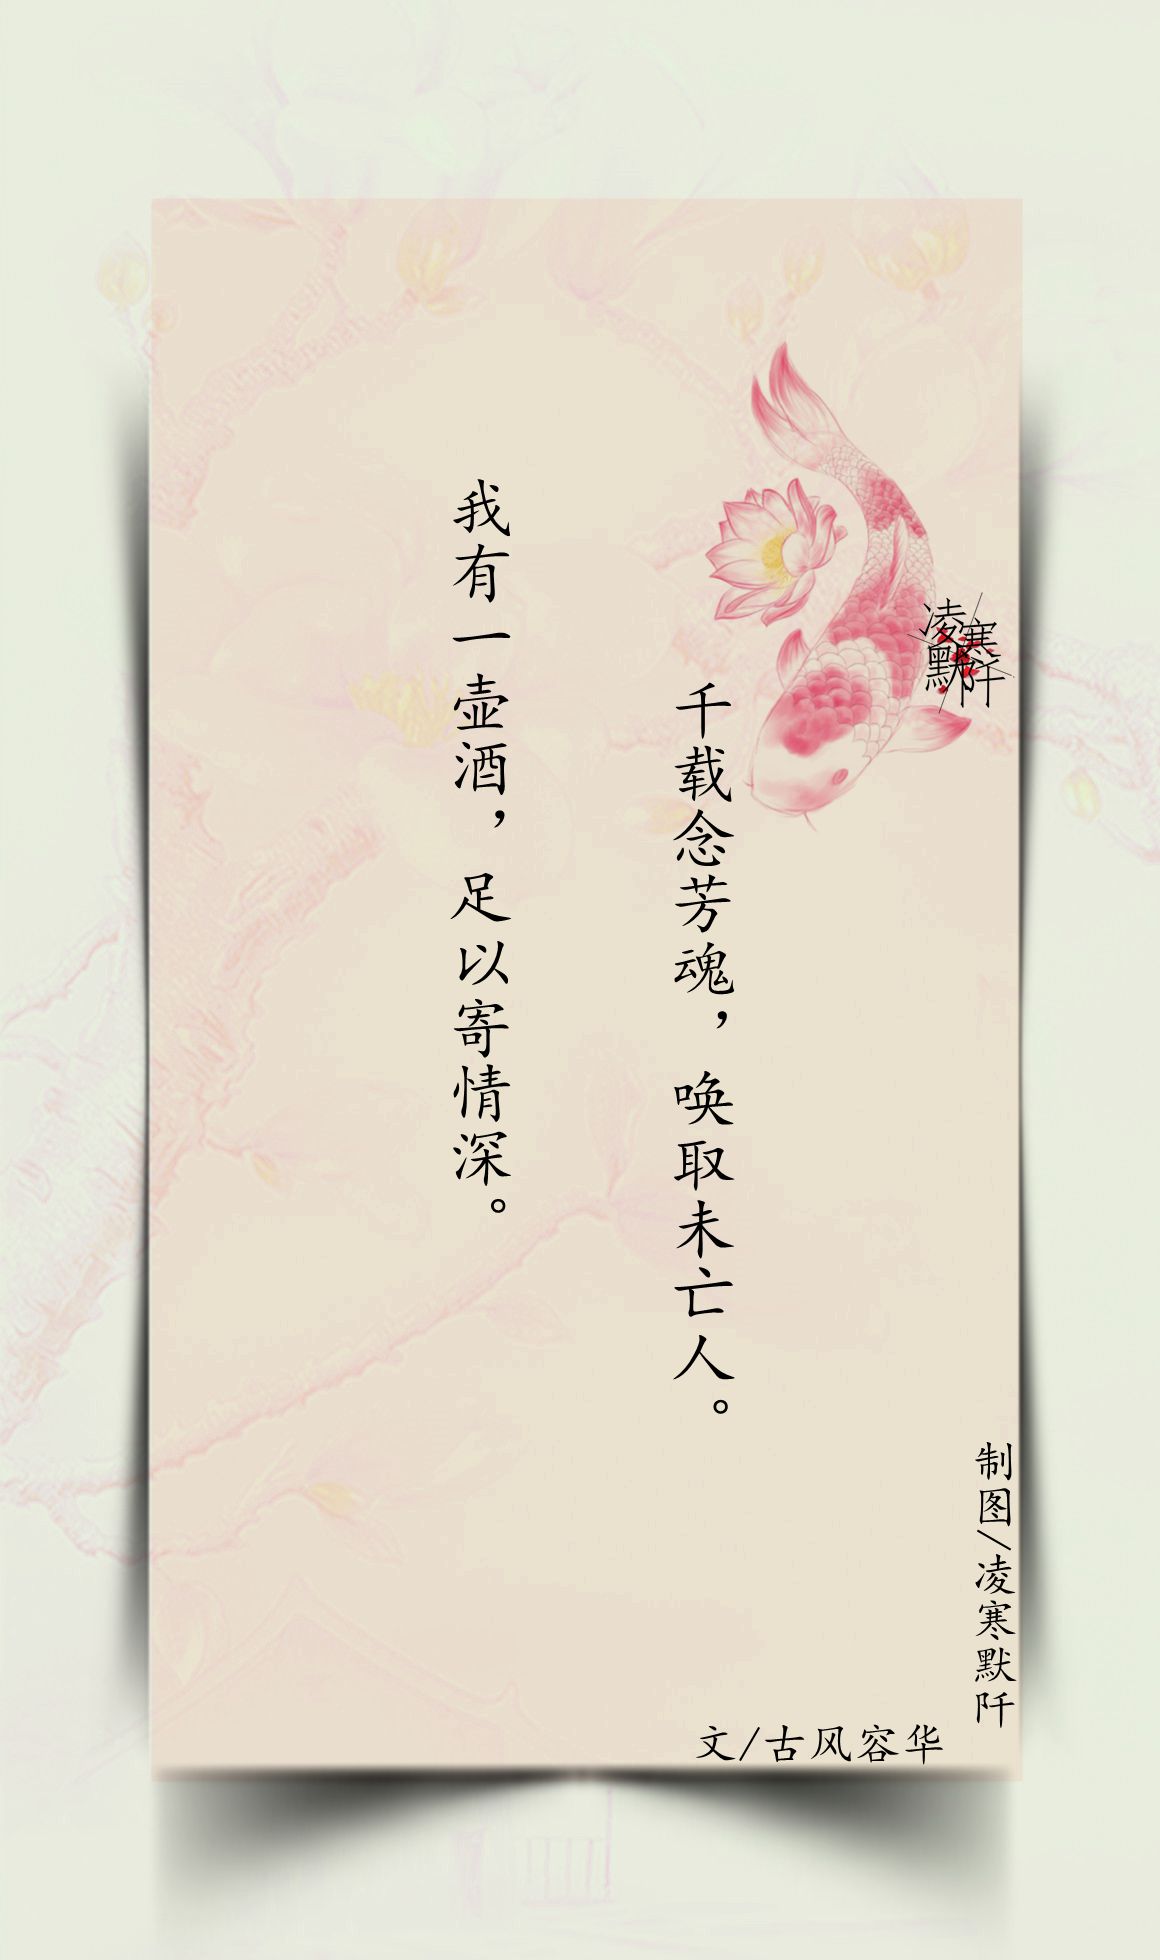 我有一壶酒，足以寄情深。
千载念芳魂，唤取未亡人。
凌寒默阡
制图/凌寒默阡
文/古风容华